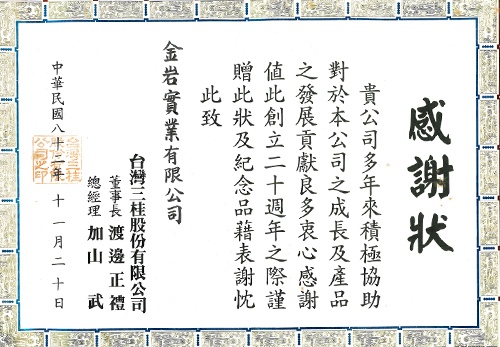 感謝狀
貴公司多年來積極協助
對於本公司之成長及產品
之發展貢獻良多衷心感謝
值此創立二十週年之際謹
贈此狀及紀念品藉表謝忱
此致
金岩實業有限公司
台灣三桂股份有限公司
董事長 渡邊正禮
總經理 加山 武
中華民國八十二年十一月二十日